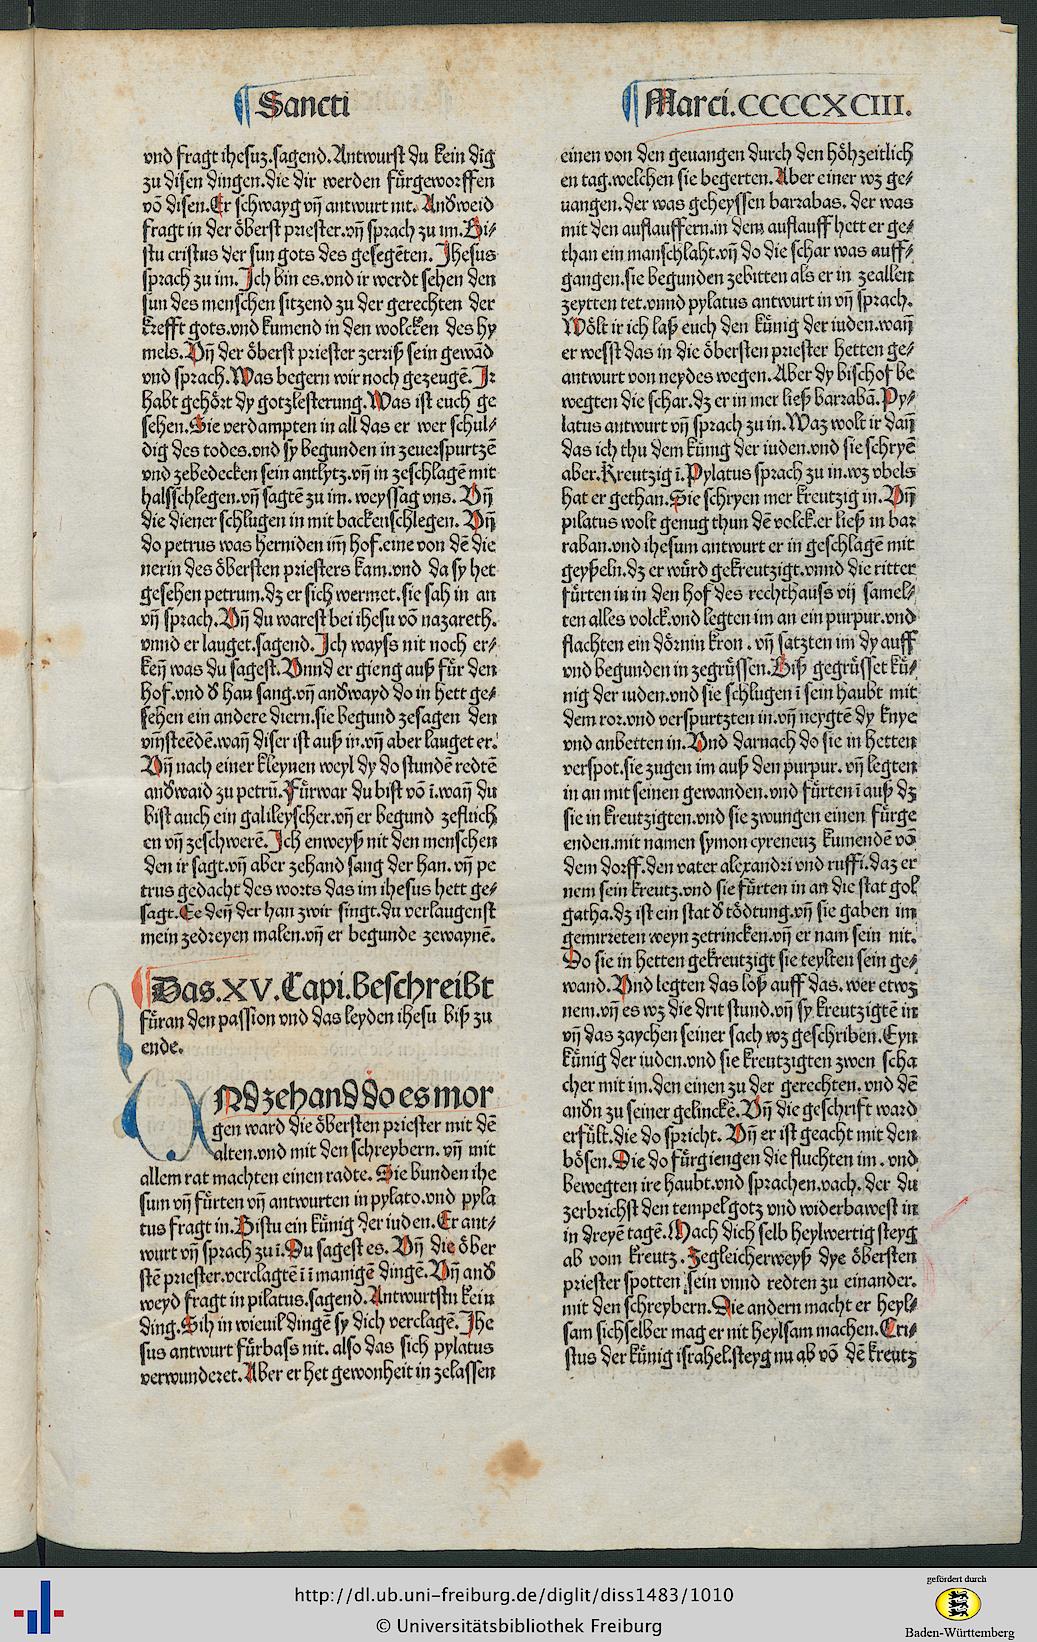 Sancti
vnd fragt ihesuz.sagend.Antwurst du kein dig
zu disen dingen.die dir werden fürgeworffen
võ disen.Er schwayg vñ antwurt nit. Andweid
fragt in der öberst priester.vñ sprach zu im.Bi⸗
stu cristus der sun gots des gesegẽten. Jhesus
sprach zu im. Jch bin es.vnd ir werdt sehen den
sun des menschen sitzend zu der gerechten der
krefft gots.vnd kumend in den wolcken des hy
mels.Vñ der öberst priester zerriß sein gewãd
vnd sprach.Was begern wir noch gezeugẽ. Jr
habt gehört dy gotzlesterung.Was ist euch ge
sehen.Sie verdampten in all das er wer schul⸗
dig des todes.vnd sy begunden in zeuerspurtzẽ
vnd zebedecken sein antlytz.vñ in zeschlagẽ mit
halsschlegen.vñ sagtẽ zu im. weyssag vns. Vñ
die diener schlugen in mit backenschlegen. Vñ
do petrus was herniden im̃ hof.eine von dẽ die
nerin des öbersten priesters kam.vnd da sy het
gesehen petrum.dz er sich wermet.sie sah in an
vñ sprach.Vñ du warest bei ihesu võ nazareth.
vnnd er lauget.sagend.Jch wayss nit noch er⸗
keñ was du sagest.Vnnd er gieng auß für den
hof.vnd d̕ han sang.vñ and̕wayd do in hett ge⸗
sehen ein andere diern.sie begund zesagen den
vm̃steẽdẽ.wañ diser ist auß in.vñ aber lauget er.
Vñ nach einer kleynen weyl dy do stundẽ redtẽ
and̕waid zu petrũ.Fürwar du bist võ ĩ.wañ du
bist auch ein galileyscher.vñ er begund zefluch
en vñ zeschwerẽ.Jch enweyß nit den menschen
den ir sagt.vñ aber zehand sang der han. vñ pe
trus gedacht des worts das im ihesus hett ge⸗
sagt.Ee deñ der han zwir singt.du verlaugenst
mein zedreyen malen.vñ er begunde zewaynẽ.
Das.XV.Capi.beschreibt
füran den passion vnd das leyden ihesu biß zu
ende.
VNd zehand do es mor
gen ward die öbersten priester mit dẽ
alten.vnd mit den schreybern. vñ mit
allem rat machten einen radte. Sie bunden ihe
sum vñ fürten vñ antwurten in pylato.vnd pyla
tus fragt in.Bistu ein künig der iuden. Er ant⸗
wurt vñ sprach zu ĩ.Du sagest es. Vñ die öber
stẽ priester.verclagtẽ ĩ ĩ manigẽ dingẽ.Vñ and̕
weyd fragt in pilatus.sagend.Antwurtstu kein
ding.Sih in wieuil dingẽ sy dich verclagẽ.Jhe
sus antwurt fürbass nit. also das sich pylatus
verwunderet.Aber er het gewonheit in zelassen
Marci.CCCCXCIII.
einen von den geuangen durch den höhzeitlich
en tag.welchen sie begerten.Aber einer wz ge⸗
uangen.der was geheyssen barrabas. der was
mit den auflauffern.in dem auflauff hett er ge⸗
than ein manschlaht.vñ do die schar was auff⸗
gangen.sie begunden zebitten als er in zeallen
zeytten tet.vnnd pylatus antwurt in vñ sprach.
Wölt ir ich laß euch den künig der iuden.wañ
er wesst das in die öbersten priester hetten ge⸗
antwurt von neydes wegen.Aber dy bischof be
wegten die schar.dz er in mer ließ barrabã.Py⸗
latus antwurt vñ sprach zu in.Waz wolt ir dañ
das ich thu dem künig der iuden.vnd sie schryẽ
aber.Kreutzig ĩ.Pylatus sprach zu in.wz vbels
hat er gethan.Sie schryen mer kreutzig in.Vñ
pilatus wolt genug thun dẽ volck.er ließ in bar
raban.vnd ihesum antwurt er in geschlagẽ mit
geyßeln.dz er würd gekreutzigt.vnnd die ritter
fürten in in den hof des rechthauss vñ samel⸗
ten alles volck.vnd legten im an ein purpur.vnd
flachten ein dörnin kron . vñ satzten im dy auff
vnd begunden in zegrüssen.Biß gegrüsset kü⸗
nig der iuden.vnd sie schlugen ĩ sein haubt mit
dem ror.vnd verspurtzten in.vñ neygtẽ dy knye
vnd anbetten in.Vnd darnach do sie in hetten
verspot.sie zugen im auß den purpur. vñ legten
in an mit seinen gewanden.vnd fürten ĩ auß dz
sie in kreutzigten.vnd sie zwungen einen fürge
enden.mit namen symon cyreneuz kumendẽ võ
dem dorff.den vater alexandri vnd ruffi.daz er
nem sein kreutz.vnd sie fürten in an die stat gol
gatha.dz ist ein stat d̕ tödtung.vñ sie gaben im
gemirreten weyn zetrincken.vñ er nam sein nit.
Do sie in hetten gekreutzigt sie teylten sein ge⸗
wand.Vnd legten das loß auff das. wer etwz
nem.vñ es wz die drit stund.vñ sy kreutzigtẽ in
vñ das zaychen seiner sach wz geschriben.Eyn
künig der iuden.vnd sie kreutzigten zwen scha
cher mit im.den einen zu der gerechten. vnd dẽ
andn̕ zu seiner gelinckẽ.Vñ die geschrift ward
erfült.die do spricht. Vñ er ist geacht mit den
bösen.Die do fürgiengen die fluchten im . vnd
bewegten ire haubt.vnd sprachen.vach. der du
zerbrichst den tempel gotz vnd widerbawest in
in dreyẽ tagẽ.Mach dich selb heylwertig steyg
ab vom kreutz . Zegleicherweyß dye öbersten
priester spotten sein vnnd redten zu einander.
mit den schreybern.Die andern macht er heyl⸗
sam sichselber mag er nit heylsam machen.Cri⸗
stus der künig israhel.steyg nu ab võ dẽ kreutz
http://dl.ub.uni-freiburg.de/diglit/diss1483/1010
© Universitätsbibliothek Freiburg
gefördert durch
Baden-Württemberg